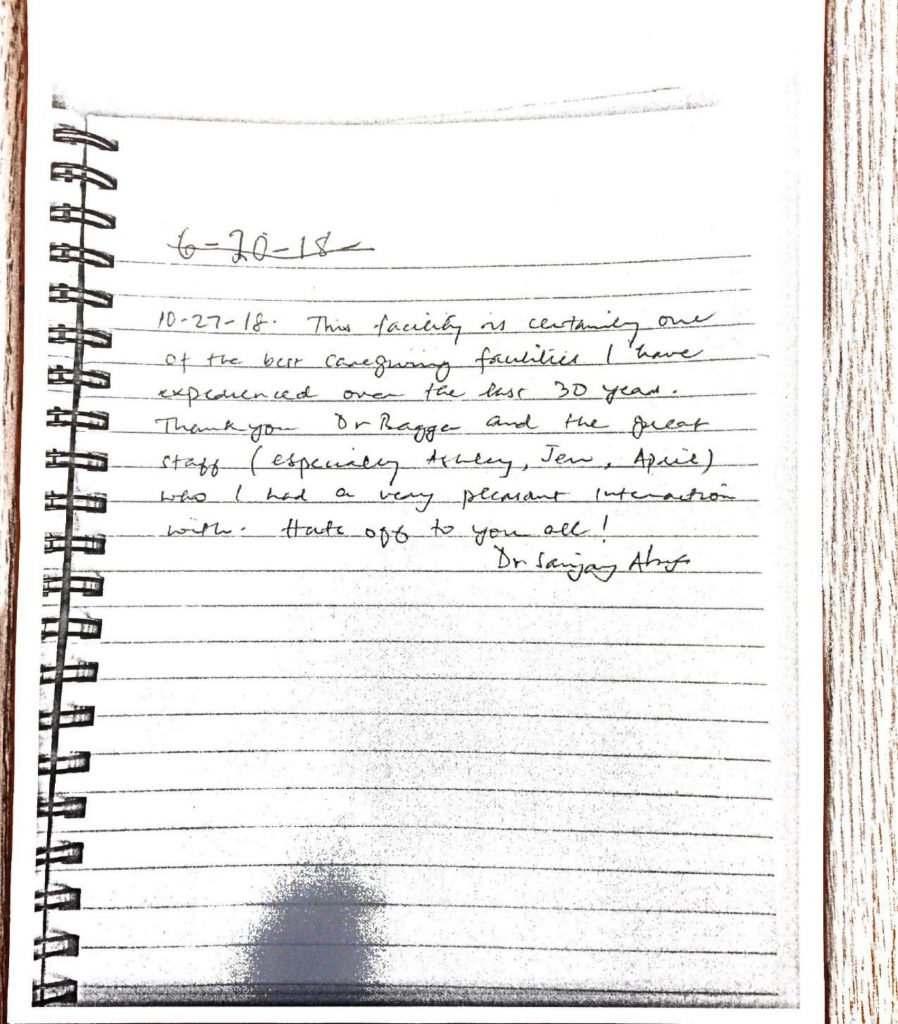 6-20-18
10-27-18. This facility is certainly one
of the best caregiving facilities I have
experienced over the last 30 years.
Thank you Dr Bagga and the great
staff (especially Ashley, Jen, April)
who I had a very pleasant interaction
with. Hats off to you all!
Dr Sanjay